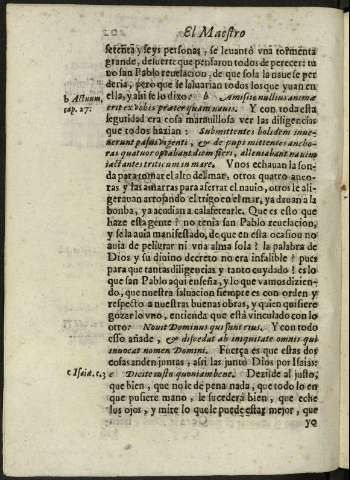 El Maestro
setenta y seys personas, se leuantò vna tormenta
grande, de suerte que pensaron todos de perecer: tu
uo san Pablo reuelacion, de que sola la naue se per
deria, pero que se saluarian todos los que yuan en
ella, y ahi se lo dixo: b Amissio nullius animæ
erit ex vobis præter quam nauis. Y con toda esta
seguridad era cosa marauillosa ver las diligencias
que todos hazian: Submittentes bolidem inue-
nerunt passus viginti, & de puppi mittentes ancho-
ras quatuor optabant diem fieri, alleuiabant nauim
iactantes triticum in mare. Vnos echauan la son-
da para tomar el alto del mar, otros quatro anco-
ras y las amarras para aferrar el nauio, otros le ali-
gerauan arrojando el trigo en el mar, ya dauan a la
bomba, ya acudian a calafetearle. Que es esto que
haze esta gente? no tenia san Pablo reuelacion,
y se la auia manifestado, de que en esta ocasion no
auia de peligrar ni vna alma sola? la palabra de
Dios y su diuino decreto no era infalible? pues
para que tantas diligencias y tanto cuydado? es lo
que san Pablo aqui enseña, y lo que vamos dizien-
do, que nuestra saluacion siempre es con orden y
respecto a nuestras buenas obras, y quien quisiere
gozar lo vno, entienda que està vinculado con lo
otro: Nouit Dominus qui sunt eius. Y con todo
esso añade, & discedat ab iniquitate omnis qui
inuocat nomen Domini. Fuerça es que estas dos
cosas anden juntas, assi las juntò Dios por Isaias:
c Dicite iusto quoniam bene. Dezilde al justo,
que bien, que no le dè pena nada, que todo lo en
que pusiere mano, le sucederà bien, que eche
los ojos, y mire lo que le puede estar mejor, que
yo
b Actuum,
cap. 27.
c Isaiæ. c. 3